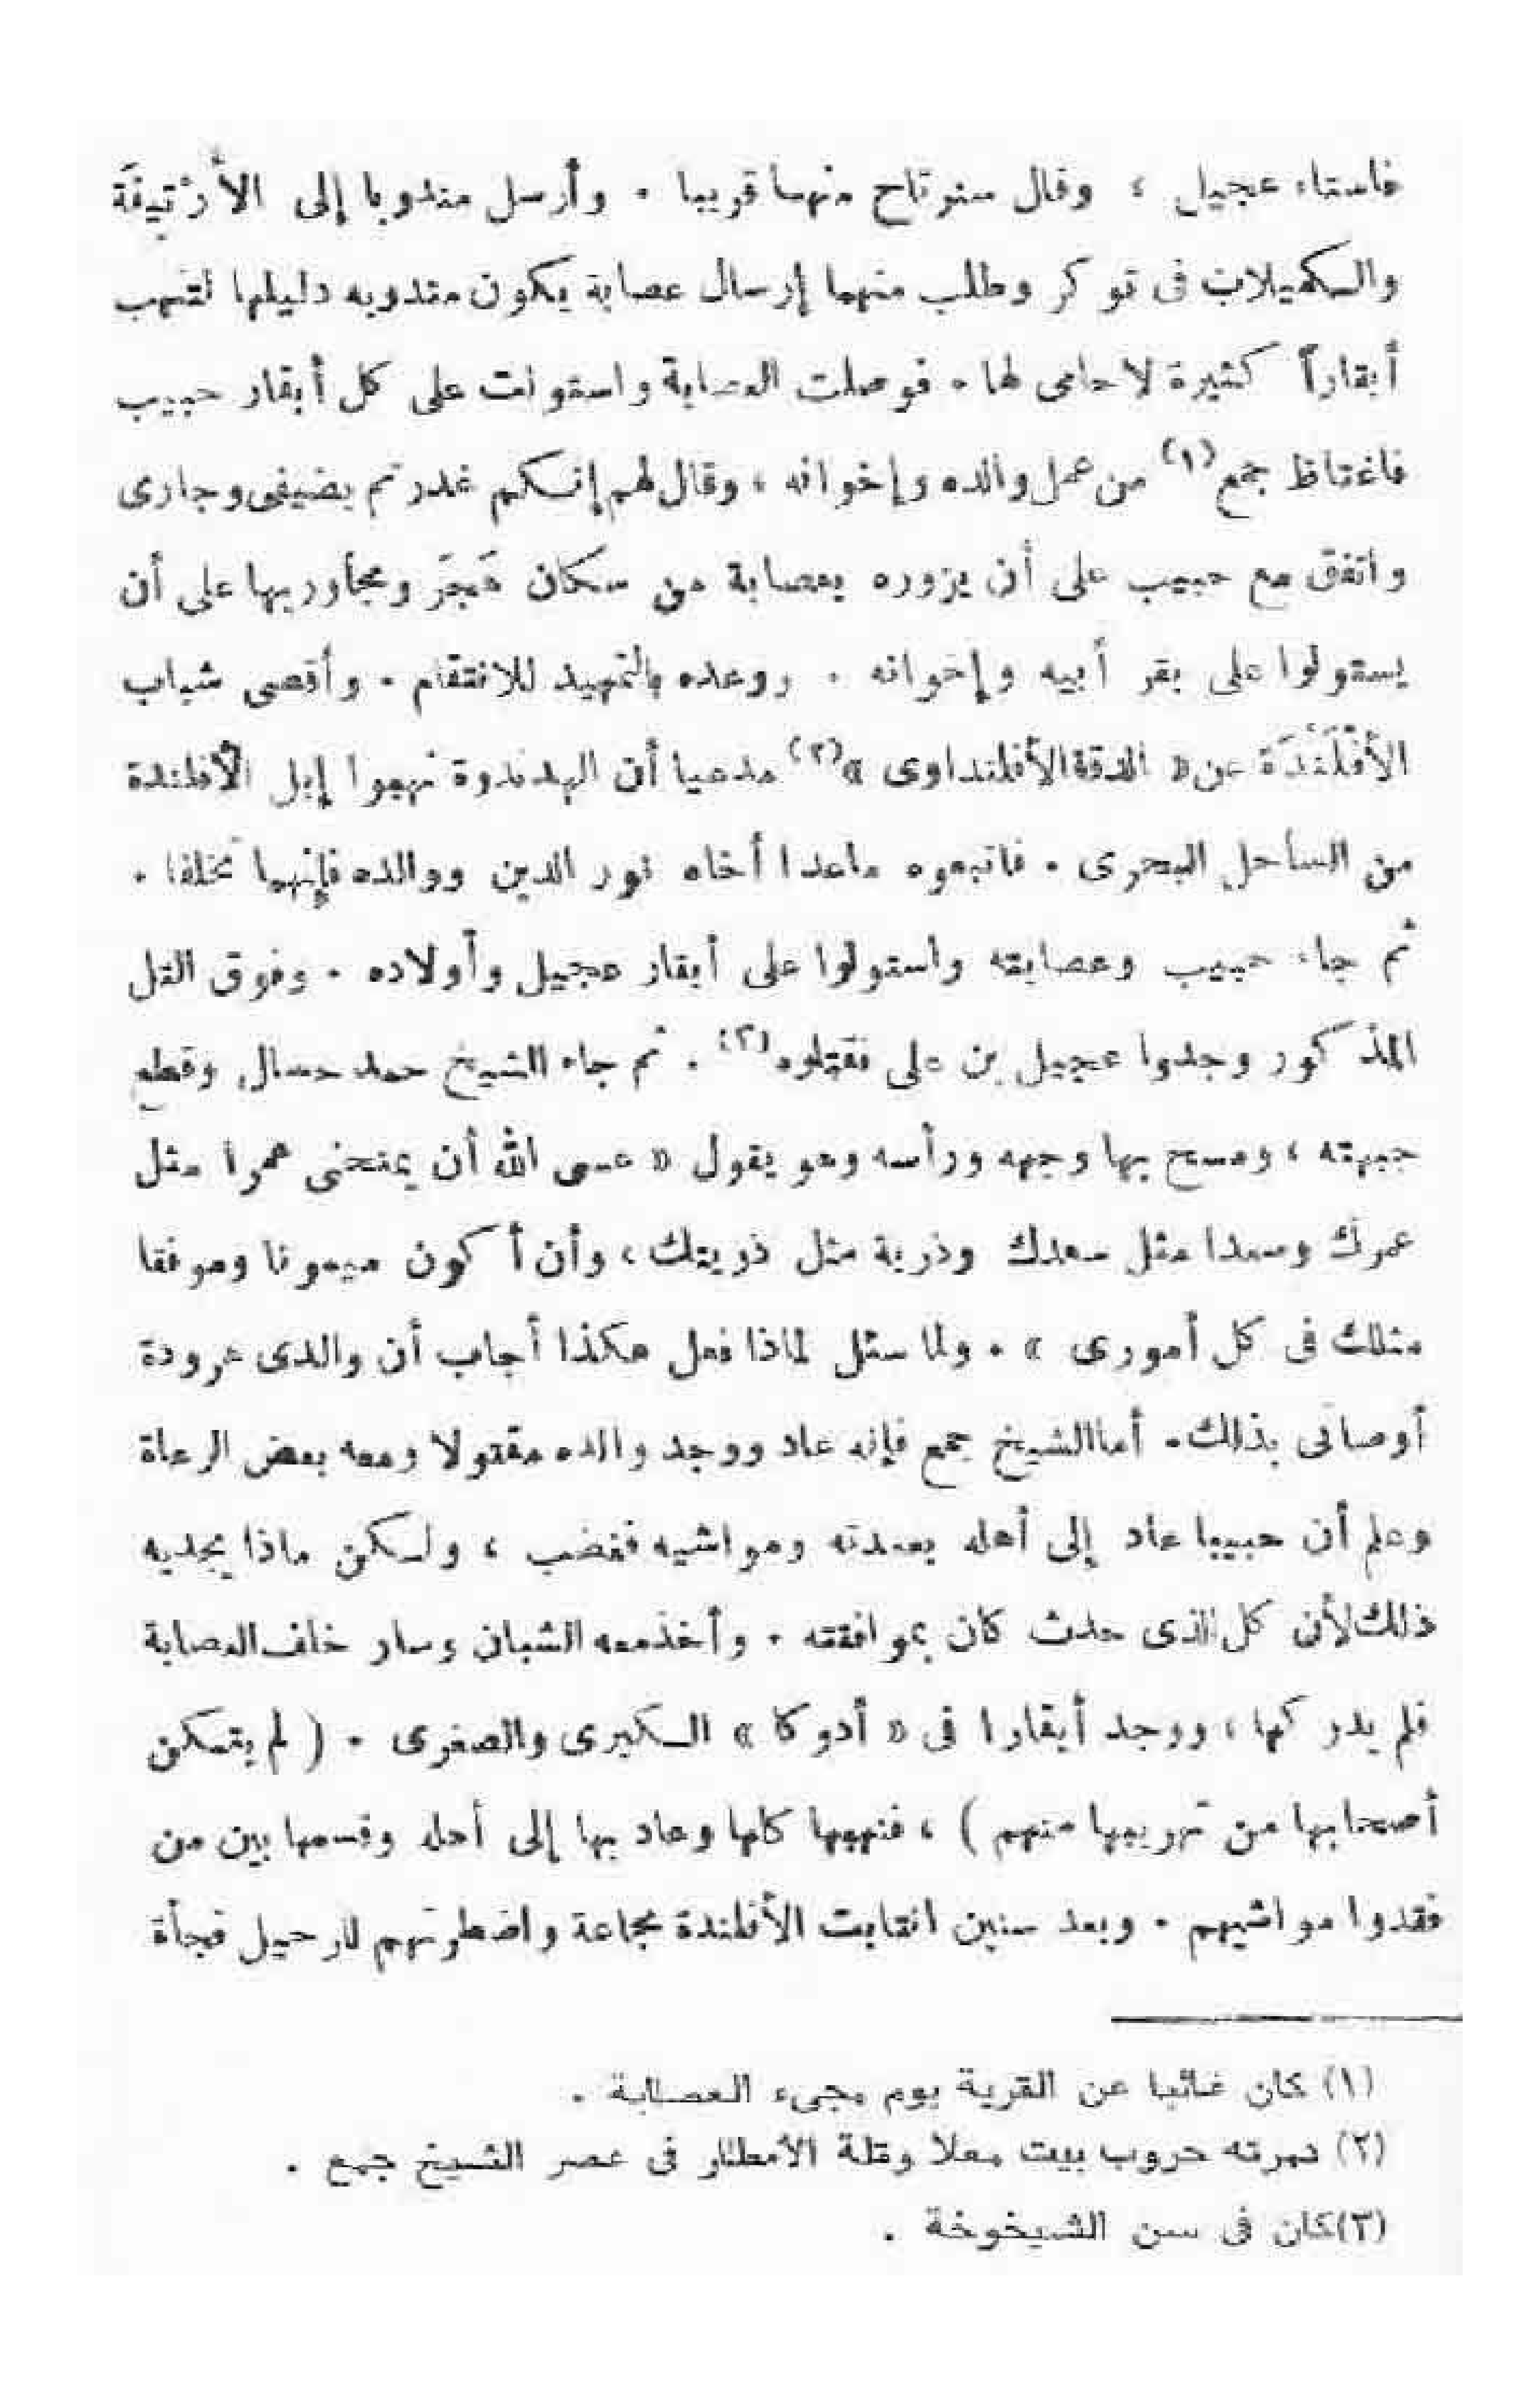 فاستاء عجيل ، وقال سنرتاح منهما قريبا . وأرسل مندوبا إلى الأرْتيقَة
والكميلاب فى توكر وطلب منهما إرسال عصابة يكون مندوبه دليلها لتنهب
أبقاراً كثيرة لا حامى لها . فوصلت العصابة واستولت على كل أبقار حبيب
فاغتاظ جمع (١) من عمل والده وإخوانه ، وقال لهم إنكم غدرتم بضيفى وجارى
واتفق مع حبيب على أن يزوره بعصابة من سكان هَيجَر ومجاوريها على أن
يستولوا على بقر أبيه وإخوانه . ووعده بالتمهيد للانتقام . وأقصى شباب
الأفْلَنْدَة عن « الدقة الأفلنداوى » (٢) مدعيا أن الهدندوة نهبوا إبل الأفلندة
من الساحل البحرى . فاتبعوه ماعدا أخاه نور الدين ووالده فإنهما تخلفا .
ثم جاء حبيب وعصابته واستولوا على أبقار عجيل وأولاده . وفوق التل
المذكور وجدوا عجيل بن على فقتلوه (٣) . ثم جاء الشيخ حمد حسال وقطع
جبهته ، ومسح بها وجهه ورأسه وهو يقول « عسى الله أن يمنحنى عمرا مثل
عمرك وسعدا مثل سعدك وذرية مثل ذريتك ، وأن أكون ميمونا وموفقا
مثلك فى كل أمورى » . ولما سئل لماذا فعل هكذا أجاب أن والدى عرودة
أوصانى بذلك . أما الشيخ جمع فإنه عاد ووجد والده مقتولا ومعه بعض الرعاة
وعلم أن حبيبا عاد إلى أهله بعدته ومواشيه فغضب ، ولكن ماذا يجديه
ذلك لأن كل الذى حدث كان بموافقته . وأخذ معه الشبان وسار خلف العصابة
فلم يدركها ، ووجد أبقارا فى « أدوكا » الكبرى والصغرى . ( لم يتمكن
أصحابها من تهريبها منهم ) ، فنهبها كلها وعاد بها إلى أهله وقسمها بين من
فقدوا مواشيهم . وبعد سنين انتابت الأفلندة مجاعة واضطرتهم للرحيل فجأة
(١) كان غائبا عن القرية يوم مجىء العصابة .
(٢) دمرته حروب بيت معلا وقلة الأمطار فى عصر الشيخ جمع .
(٣) كان فى سن الشيخوخة .